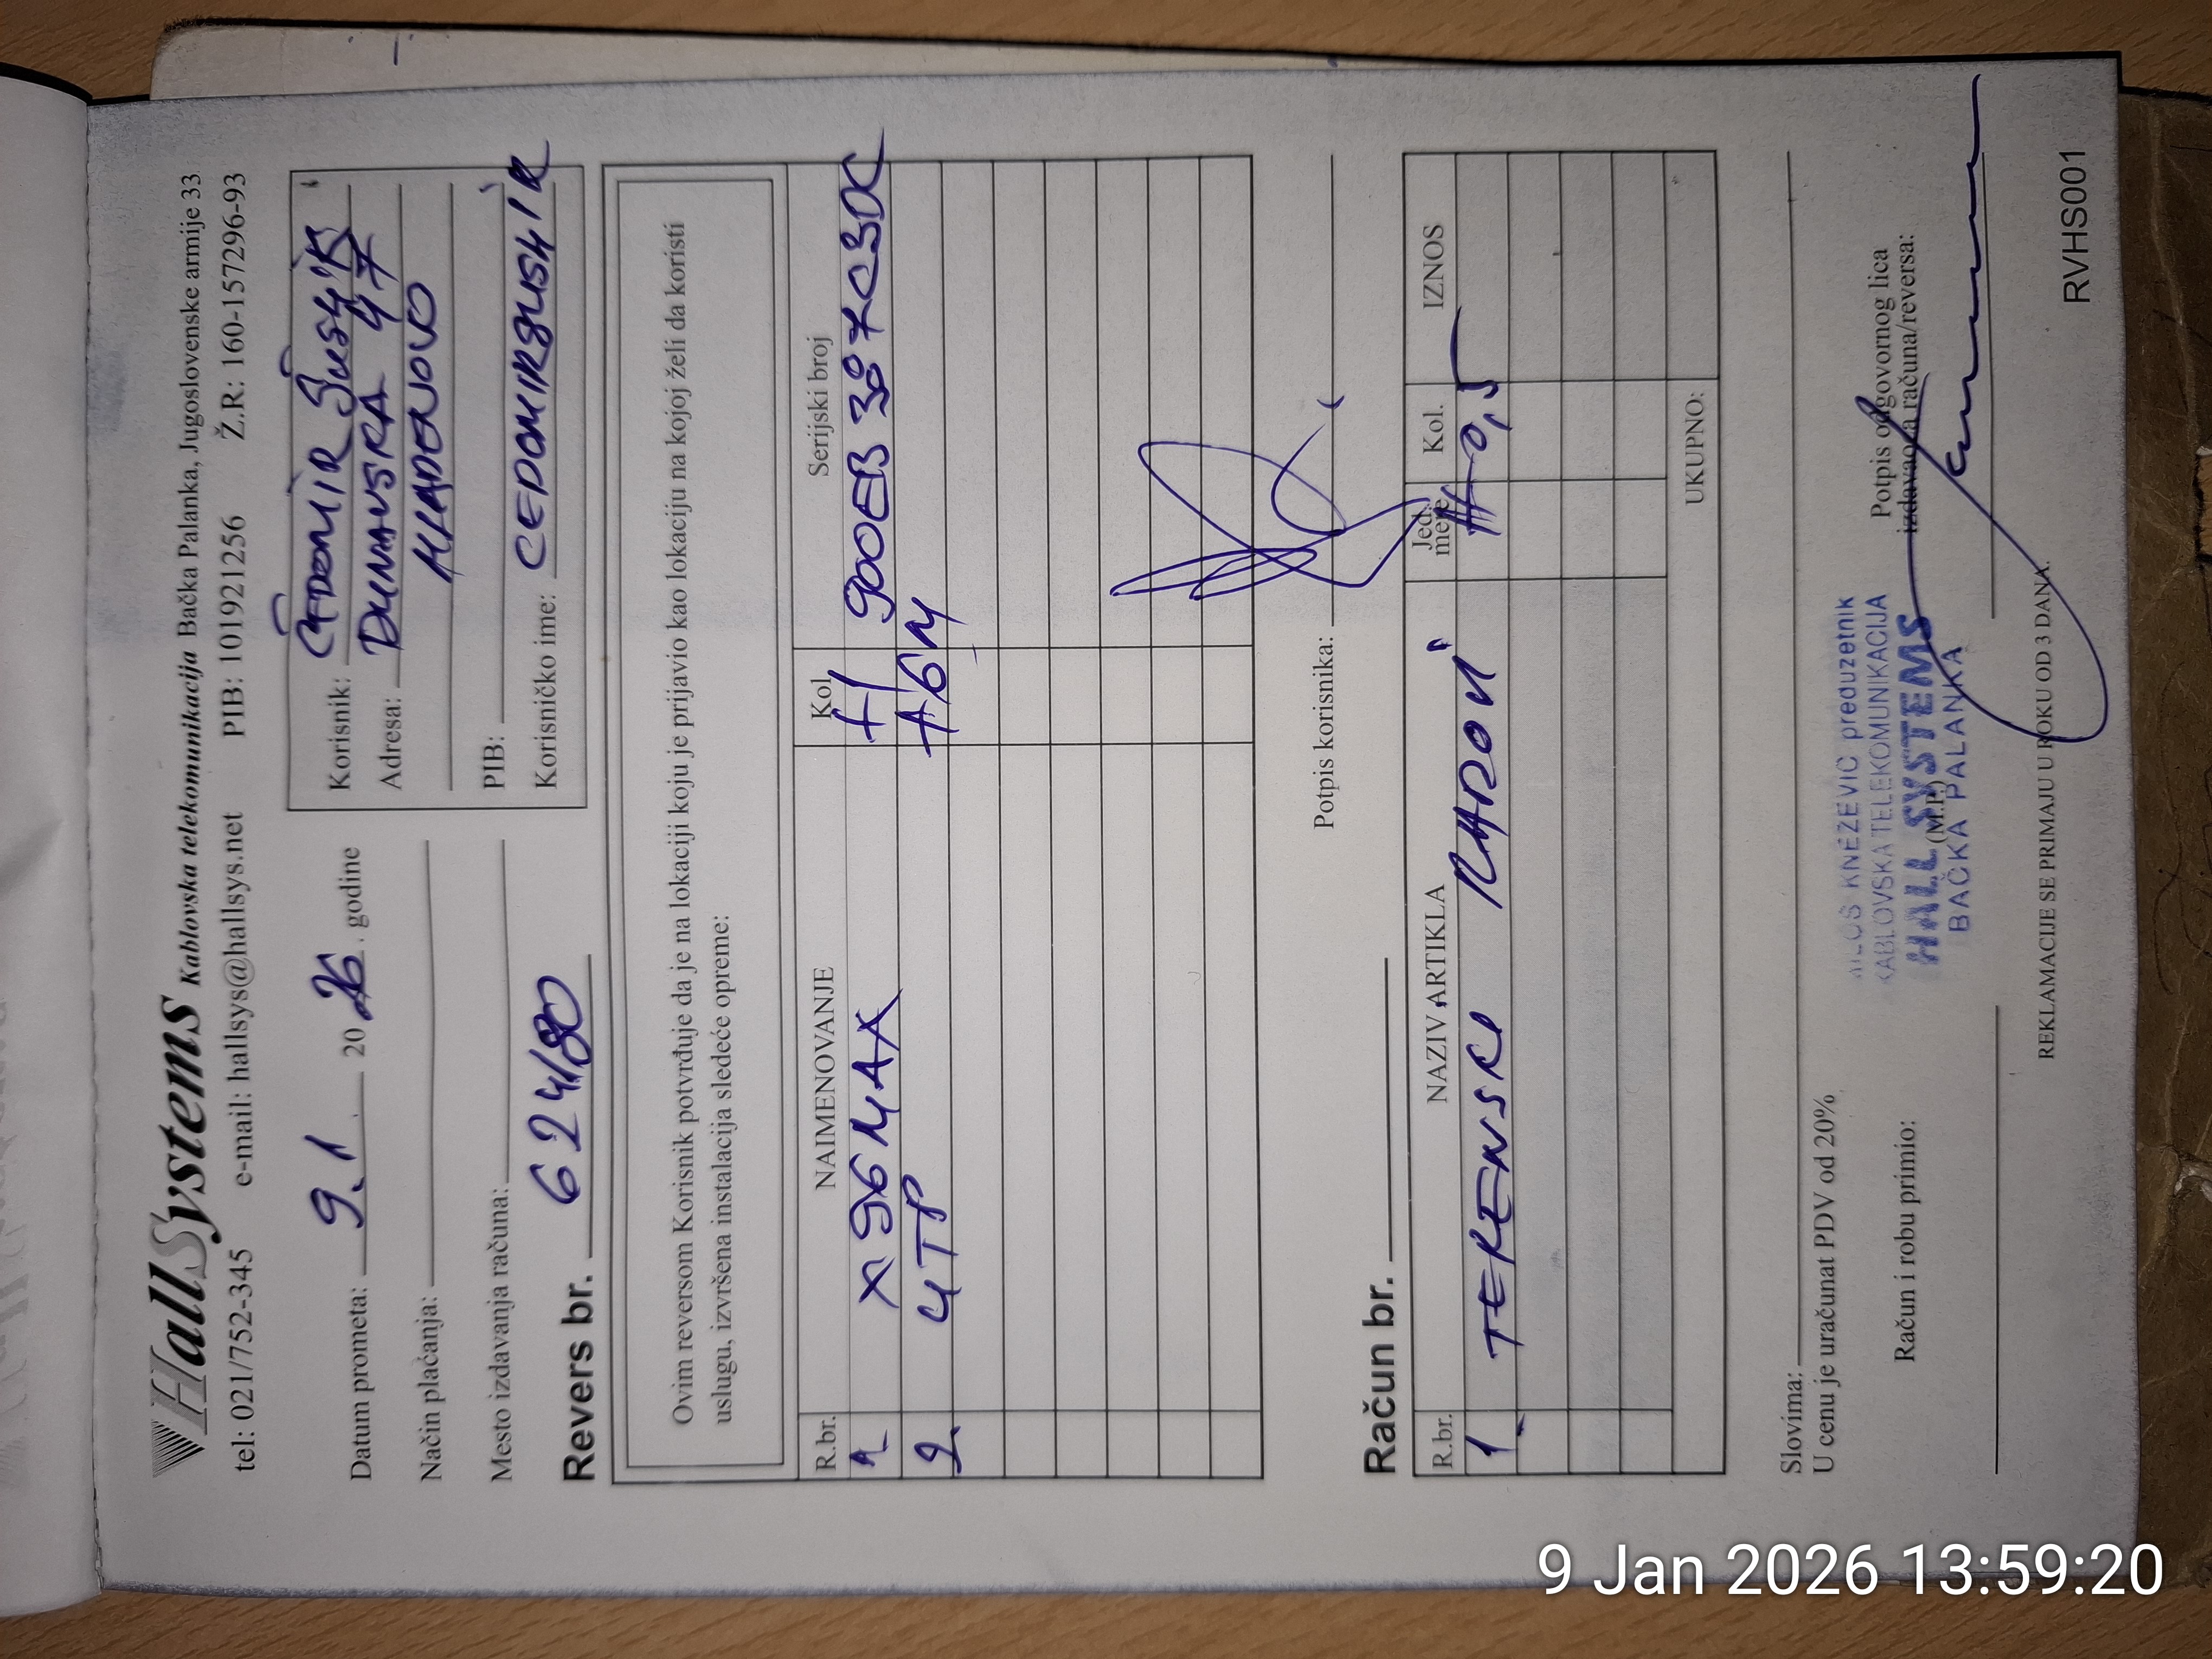 HallSystems Kablovska telekomunikacija Bačka Palanka, Jugoslovenske armije 33
tel: 021/752-345 e-mail: hallsys@hallsys.net PIB: 101921256 Ž.R: 160-157296-93
Datum prometa: 9.1 2026. godine
Način plaćanja:
Mesto izdavanja računa:
Korisnik: ČEDOMIR
Adresa: DUNAVSKA 47
MLADENOVO
PIB:
Korisničko ime:
Revers br. 624180
Ovim reversom Korisnik potvrđuje da je na lokaciji koju je prijavio kao lokaciju na kojoj želi da koristi
uslugu, izvršena instalacija sledeće opreme:
R.br. NAIMENOVANJE Kol Serijski broj
1 X96MAX +1
2 UTP +6M
Potpis korisnika:
Račun br.
R.br. NAZIV ARTIKLA Jed. mere Kol. IZNOS
1 TERENSKI RADOVI H 0,5
UKUPNO:
Slovima:
U cenu je uračunat PDV od 20%
Račun i robu primio:
MILOŠ KNEŽEVIĆ preduzetnik
KABLOVSKA TELEKOMUNIKACIJA
HALL SYSTEMS
(M.P.)
BAČKA PALANKA
Potpis odgovornog lica
izdavaoca računa/reversa:
REKLAMACIJE SE PRIMAJU U ROKU OD 3 DANA.
RVHS001
9 Jan 2026 13:59:20